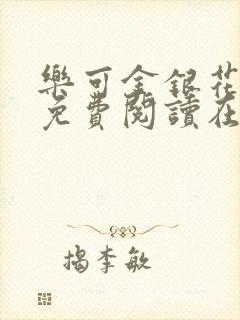 樂可金銀花
免費閱讀在
揭李敏